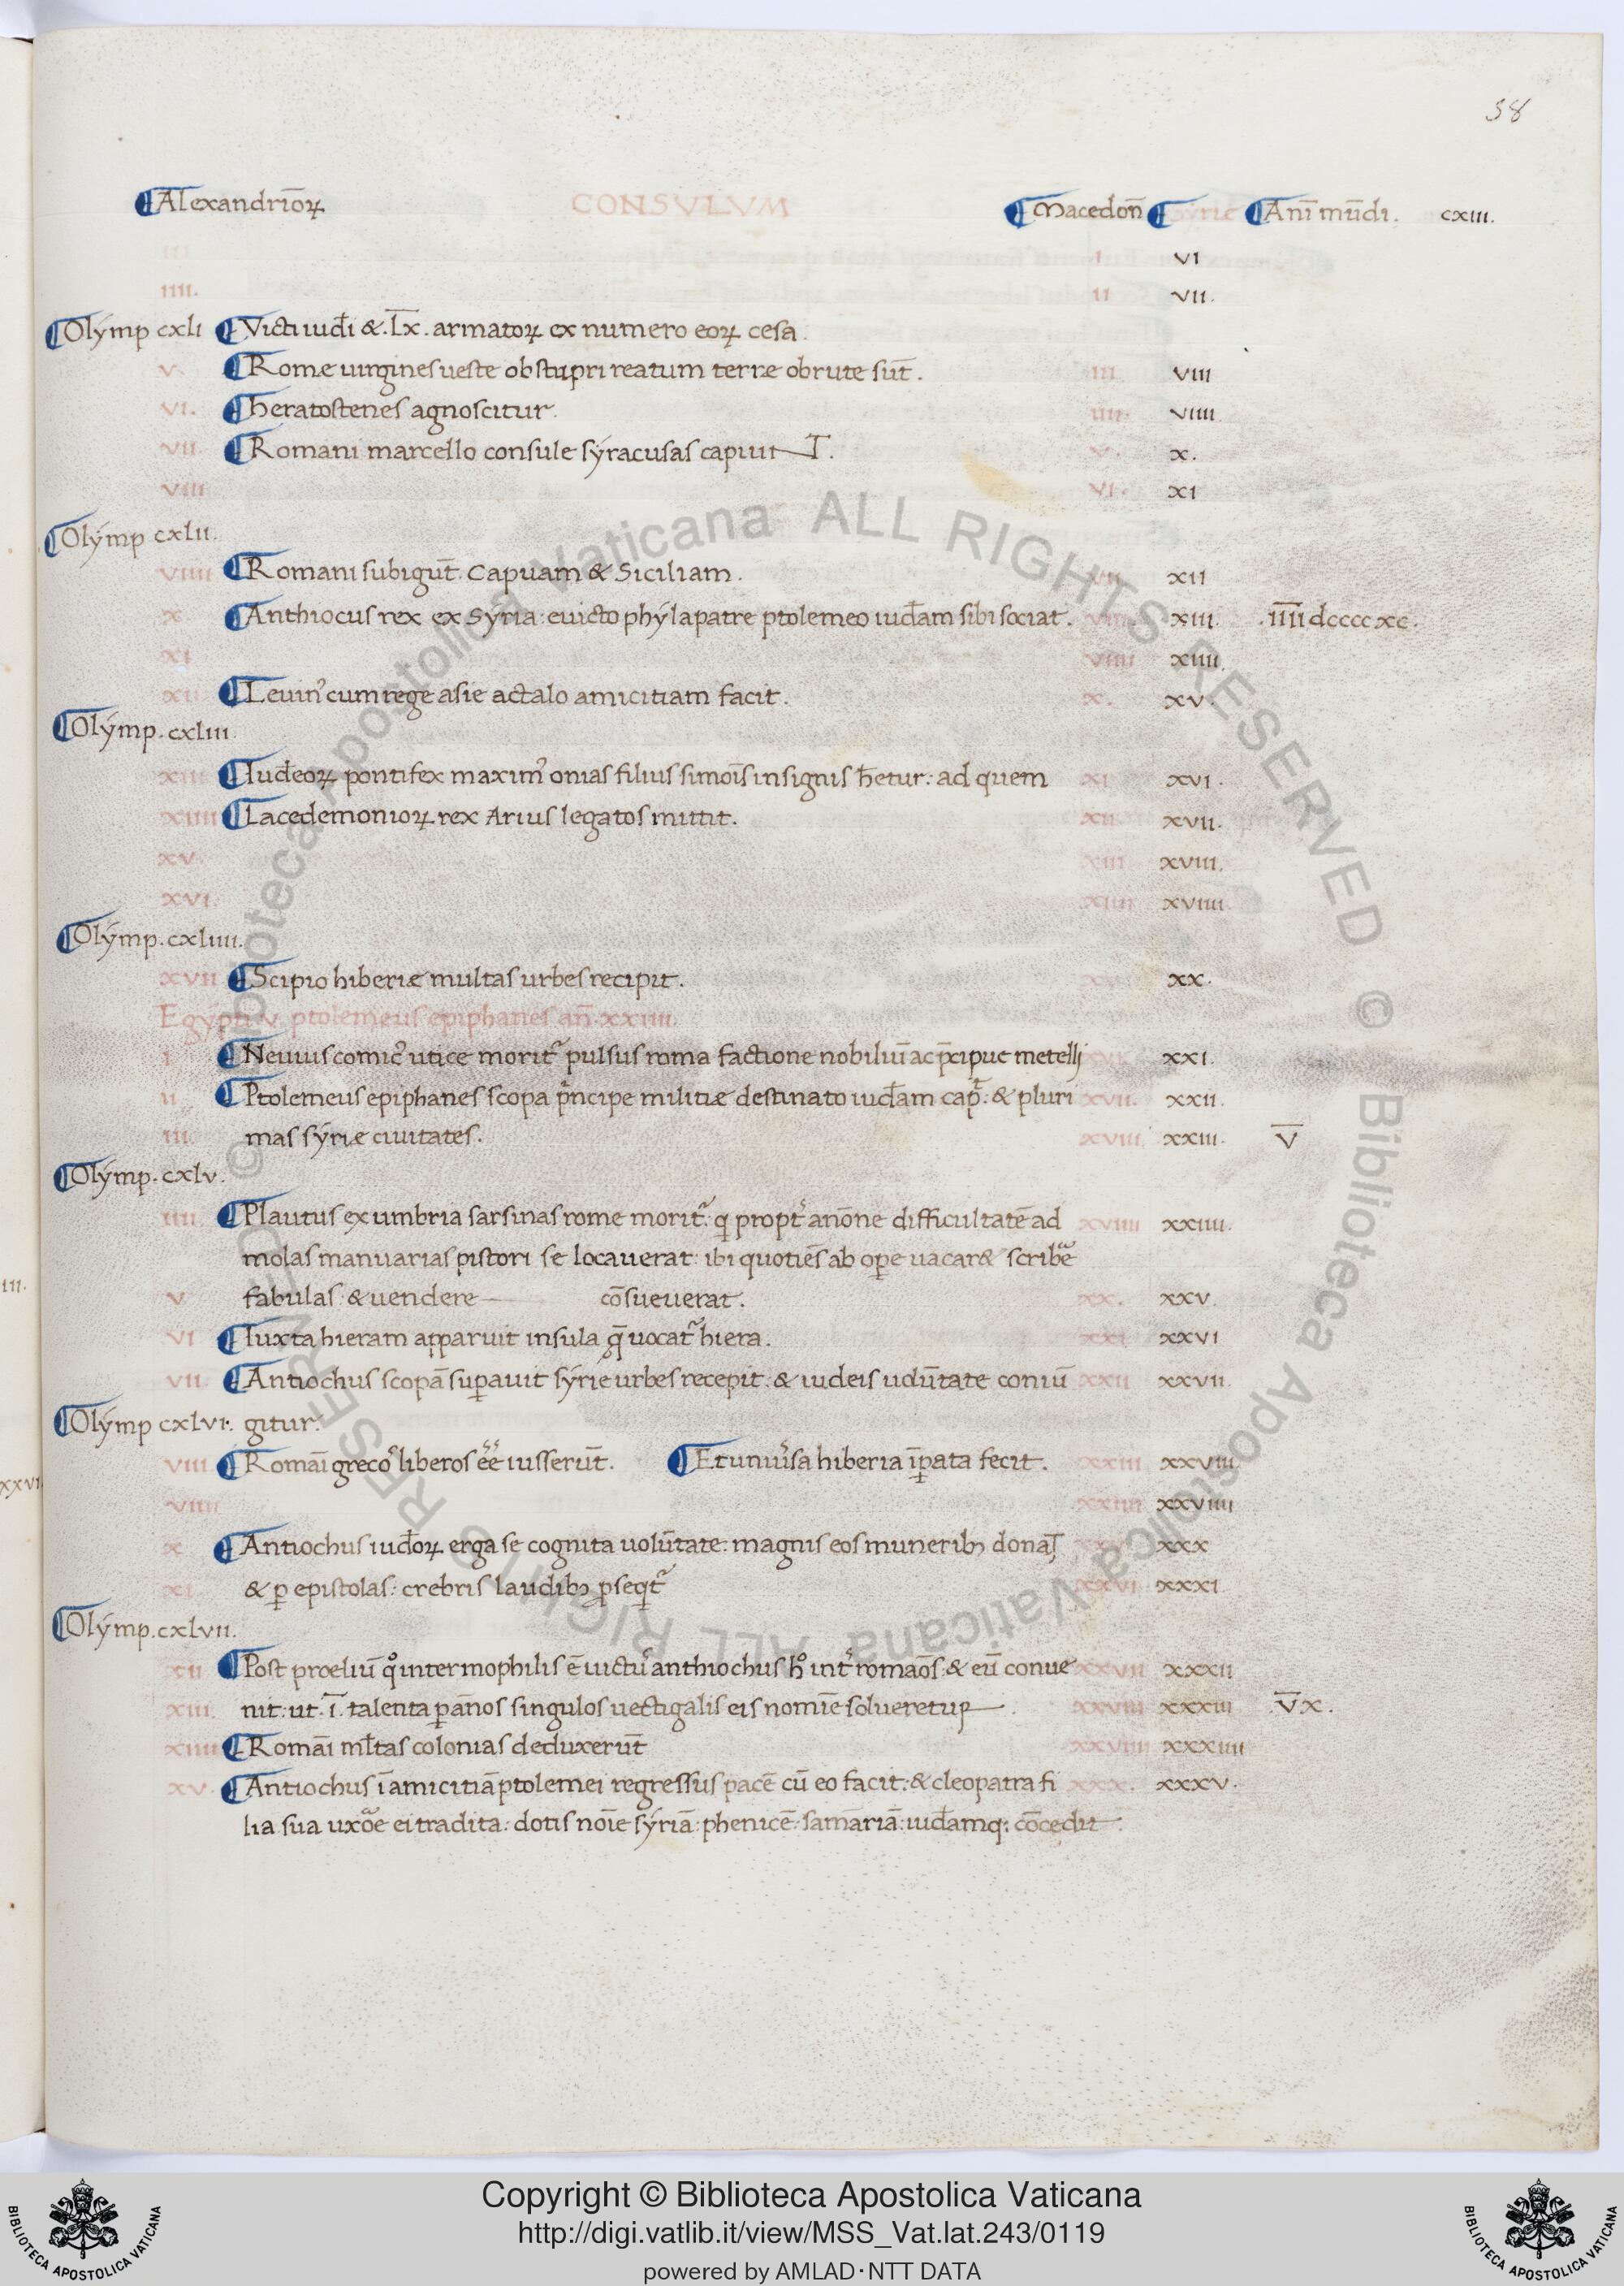 58
Alexandrioꝝ CONSVLVM Macedon̄ Syrie Ani mūdi. cxiii.
iii i vi
iiii. ii vii.
Olymp cxli Victi iud̄i &. lx̄. armatoꝝ ex numero eoꝝ cesa.
v. Rome uirgines ueste ob stupri reatum terræ obrute sūt. iii viii
vi. heratostenes agnoscitur. iiii. viiii
vii. Romani marcello consule syracusas capiuīT. v. x.
viii vi. xi
Olymp cxlii.
viiii Romani subigūt. Capuam & Siciliam. vii xii
x. Anthiocus rex ex Syria: euicto phylapatre ptolemeo iud̄am sibi sociat. viii. xiii. .īīīī dcccc xc.
xi viiii xiiii.
xii Leuin᾽ cum rege asie actalo amicitiam facit. x. xv.
Olymp. cxliii.
xiii Iud̄eoꝝ pontifex maxim᾽ onias filius simoīs insignis h̄etur: ad quem xi xvi.
xiiii Lacedemonioꝝ rex Arius legatos mittit. xii xvii.
xv. xiii xviii.
xvi. xiiii xviiii
Olymp. cxliiii.
xvii Scipio hiberiæ multas urbes recipit. xx.
Egypti v. ptolemeus epiphanes an̄. xxiiii.
i. Neuius comic᾽ utice morit᾽ pulsus roma factione nobiliū ac p̄cipue metelli xvi xxi.
ii Ptolemeus epiphanes scopa p̄ncipe militiæ destinato iud̄am cap̄t: & pluri xvii. xxii.
iii. mas syriæ ciuitates. xviii. xxiii. V̄
Olymp. cxlv.
iiii. Plautus ex umbria sarsinas rome morit᾽: q propt᾽ anōne difficultatē ad xviiii xxiiii.
molas manuarias pistori se locauerat: ibi quotiēs ab oꝑe uacar& scribē
v. fabulas: & uendere cōsueuerat. xx. xxv.
vi Iuxta hieram apparuit insula q̄ uocat᾽ hiera. xxi xxvi
vii. Antiochus scopā suꝑauit syrie urbes recepit: & iudeis uolūtate coniū xxii xxvii.
Olymp cxlvi. gitur.
viii Romāi greco᾽ liberos eē iusserūt. Et uniu᾽sa hiberia īꝑata fecit. xxiii xxviii
viiii xxiiii xxviiii
x. Antiochus iud̄oꝝ erga se cognita uolūtate: magnis eos munerib; donaT xxv xxx
xi. & ꝑ epistolas: crebris laudib; ꝓseqt᾽ xxvi xxxi.
Olymp. cxlvii.
xii Post proeliū qͦ in termophilis ē uictu᾽ anthiochus hͦ int᾽ romaōs: & eū conue xxvii xxxii
xiii. nit: ut. ī. talenta ꝑ ānos singulos uectigalis eis nomīe solueretur. xxviii xxxiii .V̄x.
xiiii Romāi ml̄tas colonias deduxerūt xxviiii xxxiiii
xv. Antiochus ī amicitiā ptolemei regressus pacē cū eo facit: & cleopatra fi xxx. xxxv.
lia sua uxōe ei tradita: dotis noīe syriā: phenicē: samāriā: iud̄amq: cōcedit.
iii.
xxvi
© Biblioteca Apostolica Vaticana ALL RIGHTS RESERVED © Biblioteca Apostolica Vaticana ALL RIGHTS RESERVED
Copyright © Biblioteca Apostolica Vaticana
http://digi.vatlib.it/view/MSS_Vat.lat.243/0119
powered by AMLAD·NTT DATA
BIBLIOTECA APOSTOLICA VATICANA
BIBLIOTECA APOSTOLICA VATICANA